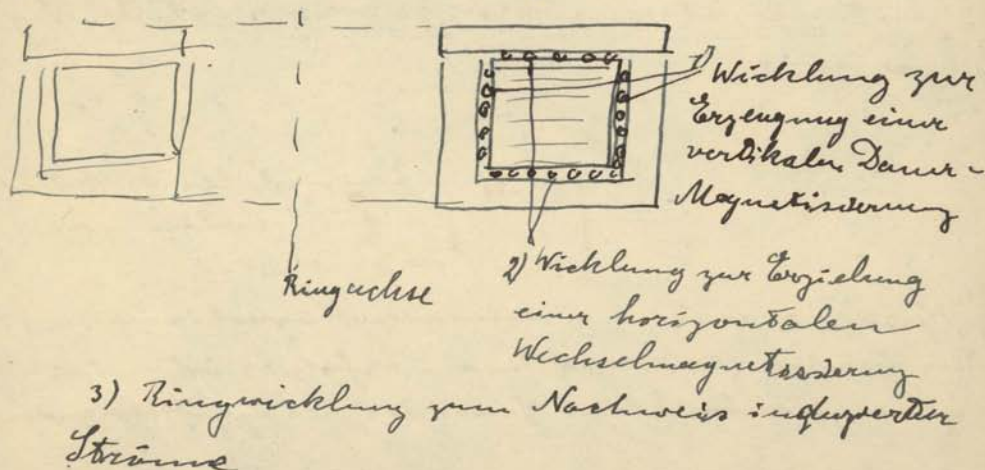 1) Wicklung zur
Erzeugung einer
vertikalen Dauer-
Magnetisierung
Ringachse
2) Wicklung zur Erzielung
einer horizontalen
Wechselmagnetisierung
3) Ringwicklung zum Nachweis induzierter
Ströme